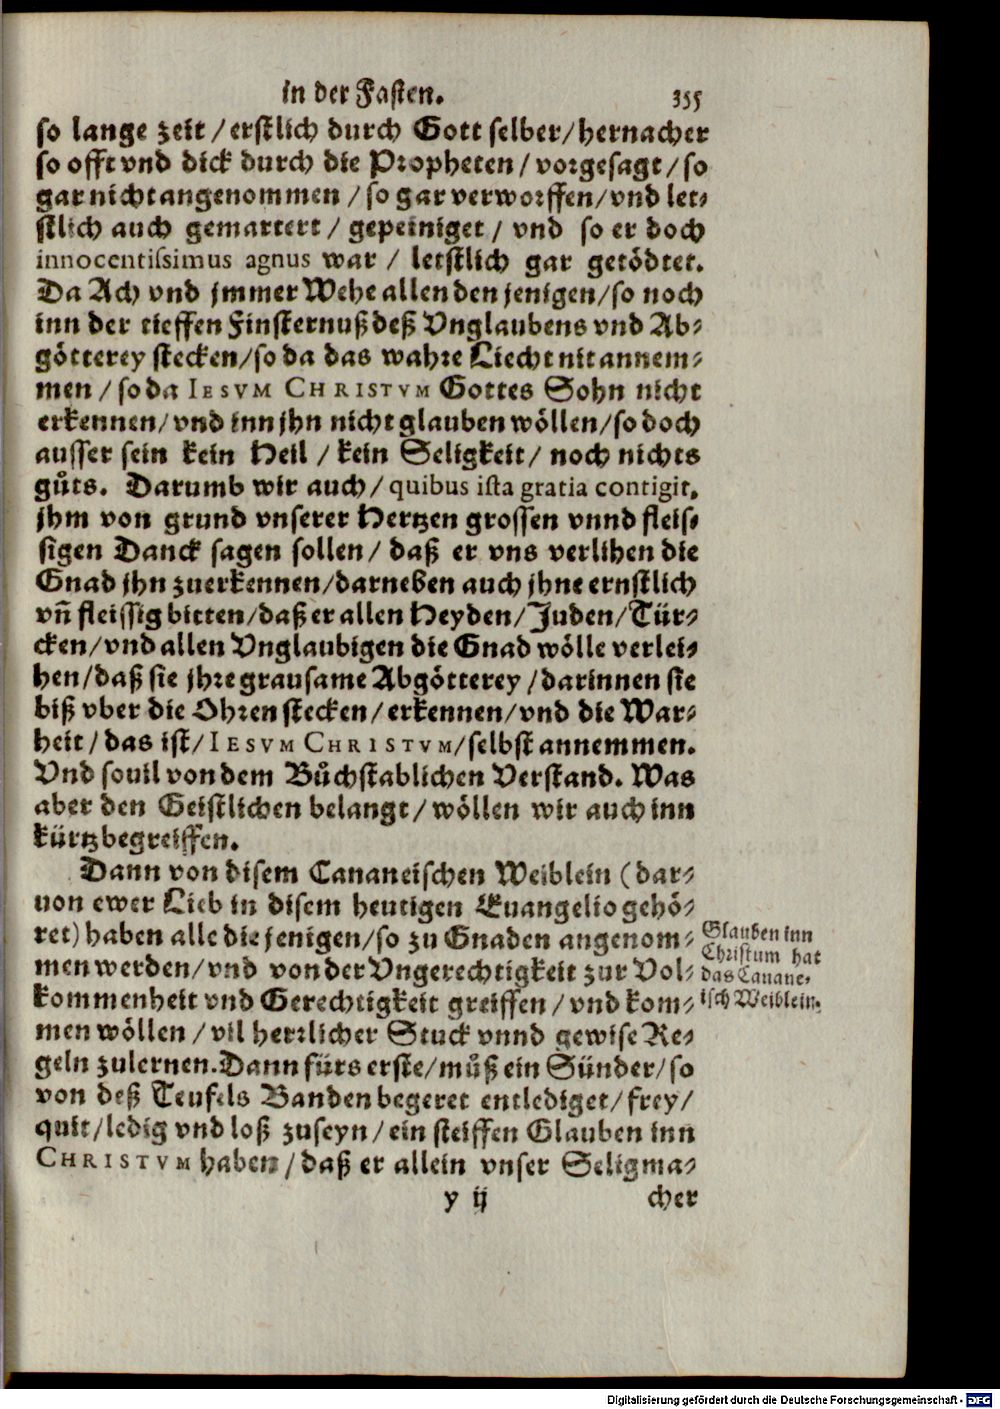 in der Fasten. 355
so lange zeit / erstlich durch Gott selber / hernacher
so offt vnd dick durch die Propheten / vorgesagt / so
gar nicht angenommen / so gar verworffen / vnd let-
stlich auch gemartert / gepeiniget / vnd so er doch
innocentissimus agnus war / letstlich gar getödtet.
Da Ach vnd jmmer Wehe allen den jenigen / so noch
inn der tieffen Finsternuß deß Vnglaubens vnd Ab-
götterey stecken / so da das wahre Liecht nit annem-
men / so da IESVM CHRISTVM Gottes Sohn nicht
erkennen / vnd inn jhn nicht glauben wöllen / so doch
ausser sein kein Heil / kein Seligkeit / noch nichts
gůts. Darumb wir auch / quibus ista gratia contigit,
jhm von grund vnserer Hertzen grossen vnnd fleis-
sigen Danck sagen sollen / daß er vns verlihen die
Gnad jhn zuerkennen / darneben auch jhne ernstlich
vñ fleissig bitten / daß er allen Heyden / Juden / Tür-
cken / vnd allen Vnglaubigen die Gnad wölle verlei-
hen / daß sie jhre grausame Abgötterey / darinnen sie
biß vber die Ohren stecken / erkennen / vnd die War-
heit / das ist / IESVM CHRISTVM / selbst annemmen.
Vnd souil von dem Bůchstablichen Verstand. Was
aber den Geistlichen belangt / wöllen wir auch inn
kürtz begreiffen.
Dann von disem Cananeischen Weiblein (dar-
uon ewer Lieb in disem heutigen Euangelio gehö-
ret) haben alle die jenigen / so zu Gnaden angenom-
men werden / vnd von der Vngerechtigkeit zur Vol-
kommenheit vnd Gerechtigkeit greiffen / vnd kom-
men wöllen / vil herrlicher Stuck vnnd gewise Re-
geln zulernen. Dann fürs erste / můß ein Sünder / so
von deß Teufels Banden begeret entlediget / frey /
quit / ledig vnd loß zuseyn / ein steiffen Glauben inn
CHRISTVM haben / daß er allein vnser Seligma-
y ij cher
Glauben inn
Christum hat
das Canane-
isch Weiblein.
Digitalisierung gefördert durch die Deutsche Forschungsgemeinschaft - DFG